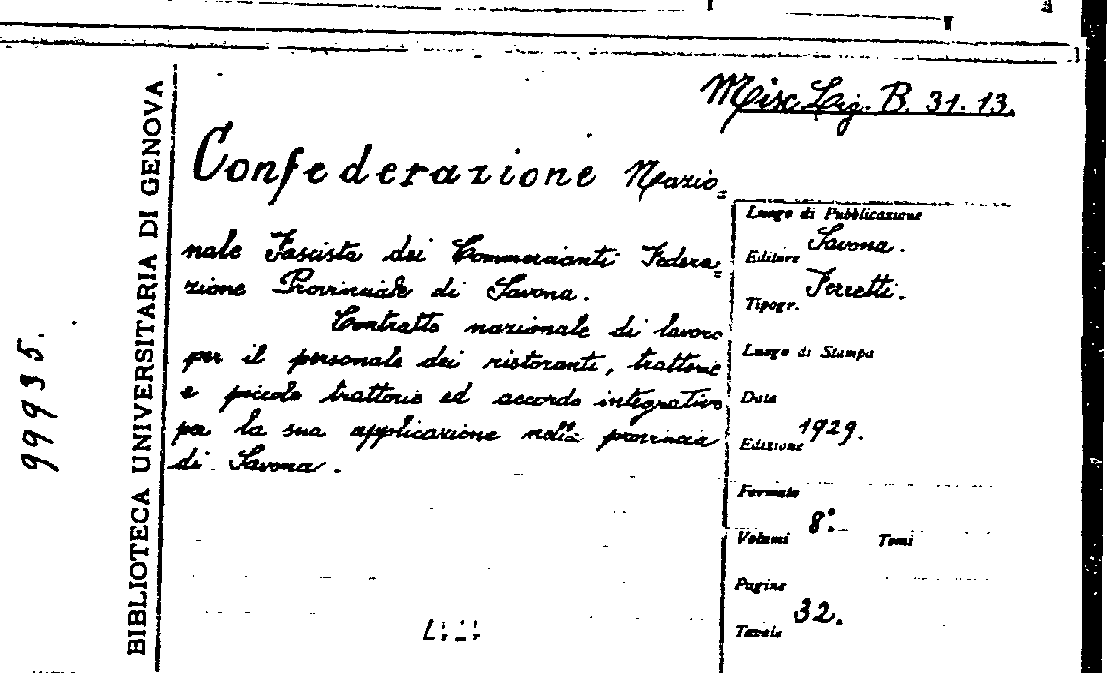 Misc. Lig. B. 31. 13.
BIBLIOTECA UNIVERSITARIA DI GENOVA
99935.
Confederazione Nazio=
nale Fascista dei Commercianti Federa=
zione Provinciale di Savona.
Contratto nazionale di lavoro
per il personale dei ristoranti, trattorie
e piccole trattorie ed accordo integrativo
per la sua applicazione nella provincia
di Savona.
Luogo di Pubblicazione
Savona.
Editore
Ferretti.
Tipogr.
Luogo di Stampa
Data
1929.
Edizione
Formato
8º
Volumi Tomi
Pagine
32.
Tavole